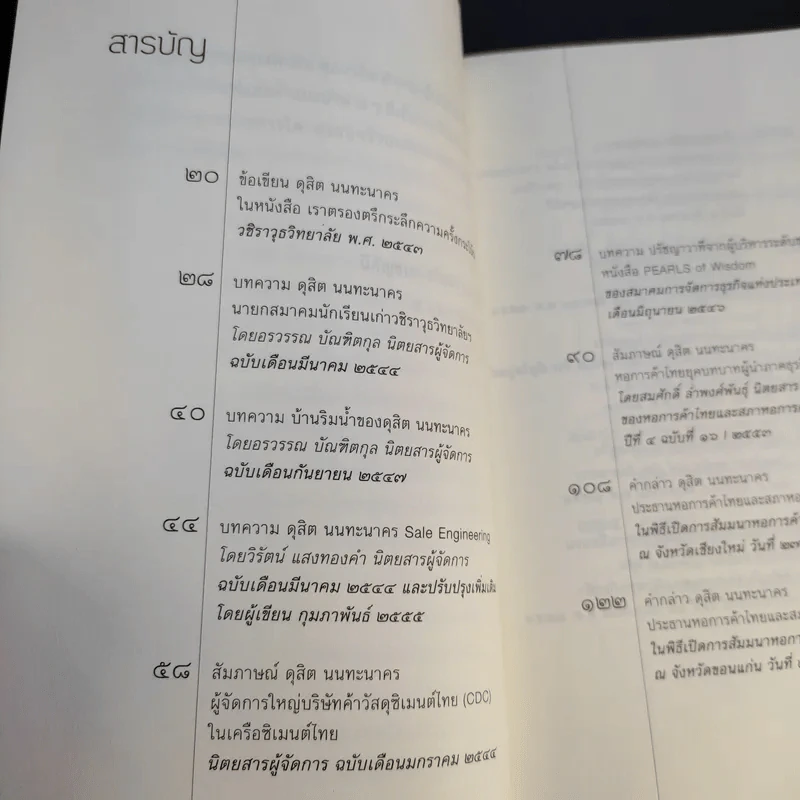 สารบัญ
๒๐
ข้อเขียน ดุสิต นนทะนาคร
ในหนังสือ เราตรองตรึกระลึกความครั้งกระโน้น
วชิราวุธวิทยาลัย พ.ศ. ๒๕๔๓
๒๘
บทความ ดุสิต นนทะนาคร
นายกสมาคมนักเรียนเก่าวชิราวุธวิทยาลัยฯ
โดยอรวรรณ บัณฑิตกุล นิตยสารผู้จัดการ
ฉบับเดือนมีนาคม ๒๕๔๔
๔๐
บทความ บ้านริมน้ำของดุสิต นนทะนาคร
โดยอรวรรณ บัณฑิตกุล นิตยสารผู้จัดการ
ฉบับเดือนกันยายน ๒๕๔๗
๔๔
บทความ ดุสิต นนทะนาคร Sale Engineering
โดยวิรัตน์ แสงทองคำ นิตยสารผู้จัดการ
ฉบับเดือนมีนาคม ๒๕๔๔ และปรับปรุงเพิ่มเติม
โดยผู้เขียน กุมภาพันธ์ ๒๕๕๕
๕๘
สัมภาษณ์ ดุสิต นนทะนาคร
ผู้จัดการใหญ่บริษัทค้าวัสดุซิเมนต์ไทย (CDC)
ในเครือซิเมนต์ไทย
นิตยสารผู้จัดการ ฉบับเดือนมกราคม ๒๕๔๔
๗๘
บทความ ปรัชญาวาทีจากผู้บริหารระดับ
หนังสือ PEARLS of Wisdom
ของสมาคมการจัดการธุรกิจแห่งประเท
เดือนมิถุนายน ๒๕๔๖
๙๐
สัมภาษณ์ ดุสิต นนทะนาคร
หอการค้าไทยยุคบทบาทผู้นำภาคธุร
โดยสมศักดิ์ ล่ำพงศ์พันธุ์ นิตยสาร
ของหอการค้าไทยและสภาหอการ
ปีที่ ๔ ฉบับที่ ๑๖ / ๒๕๕๓
๑๐๘
คำกล่าว ดุสิต นนทะนาคร
ประธานหอการค้าไทยและสภาหอ
ในพิธีเปิดการสัมมนาหอการค้า
ณ จังหวัดเชียงใหม่ วันที่ ๒๗
๑๒๒
คำกล่าว ดุสิต นนทะนาคร
ประธานหอการค้าไทยและส
ในพิธีเปิดการสัมมนาหอกา
ณ จังหวัดขอนแก่น วันที่